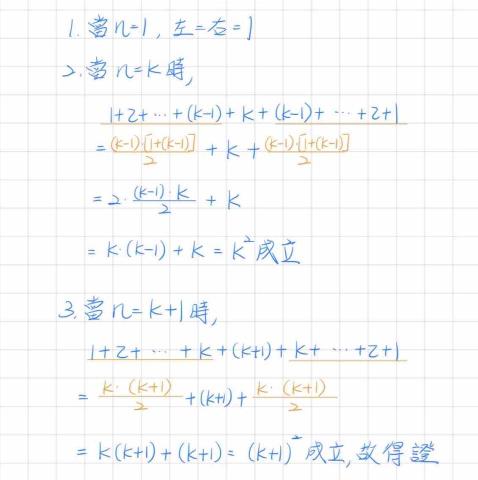 1. 當 n=1, 左=右=1
2. 當 n=k 時,
1+2+ ⋯ +(k-1)+k+(k-1)+ ⋯ +2+1
= (k-1)·[1+(k-1)]/2 + k + (k-1)·[1+(k-1)]/2
= 2· (k-1)·k/2 + k
= k·(k-1)+k = k² 成立
3. 當 n=k+1 時,
1+2+ ⋯ +k+(k+1)+k+ ⋯ +2+1
= k·(k+1)/2 +(k+1)+ k·(k+1)/2
= k(k+1)+(k+1) = (k+1)² 成立, 故得證